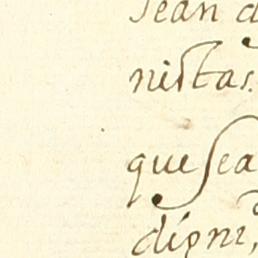 sean d
nistas.
que sea
digni,